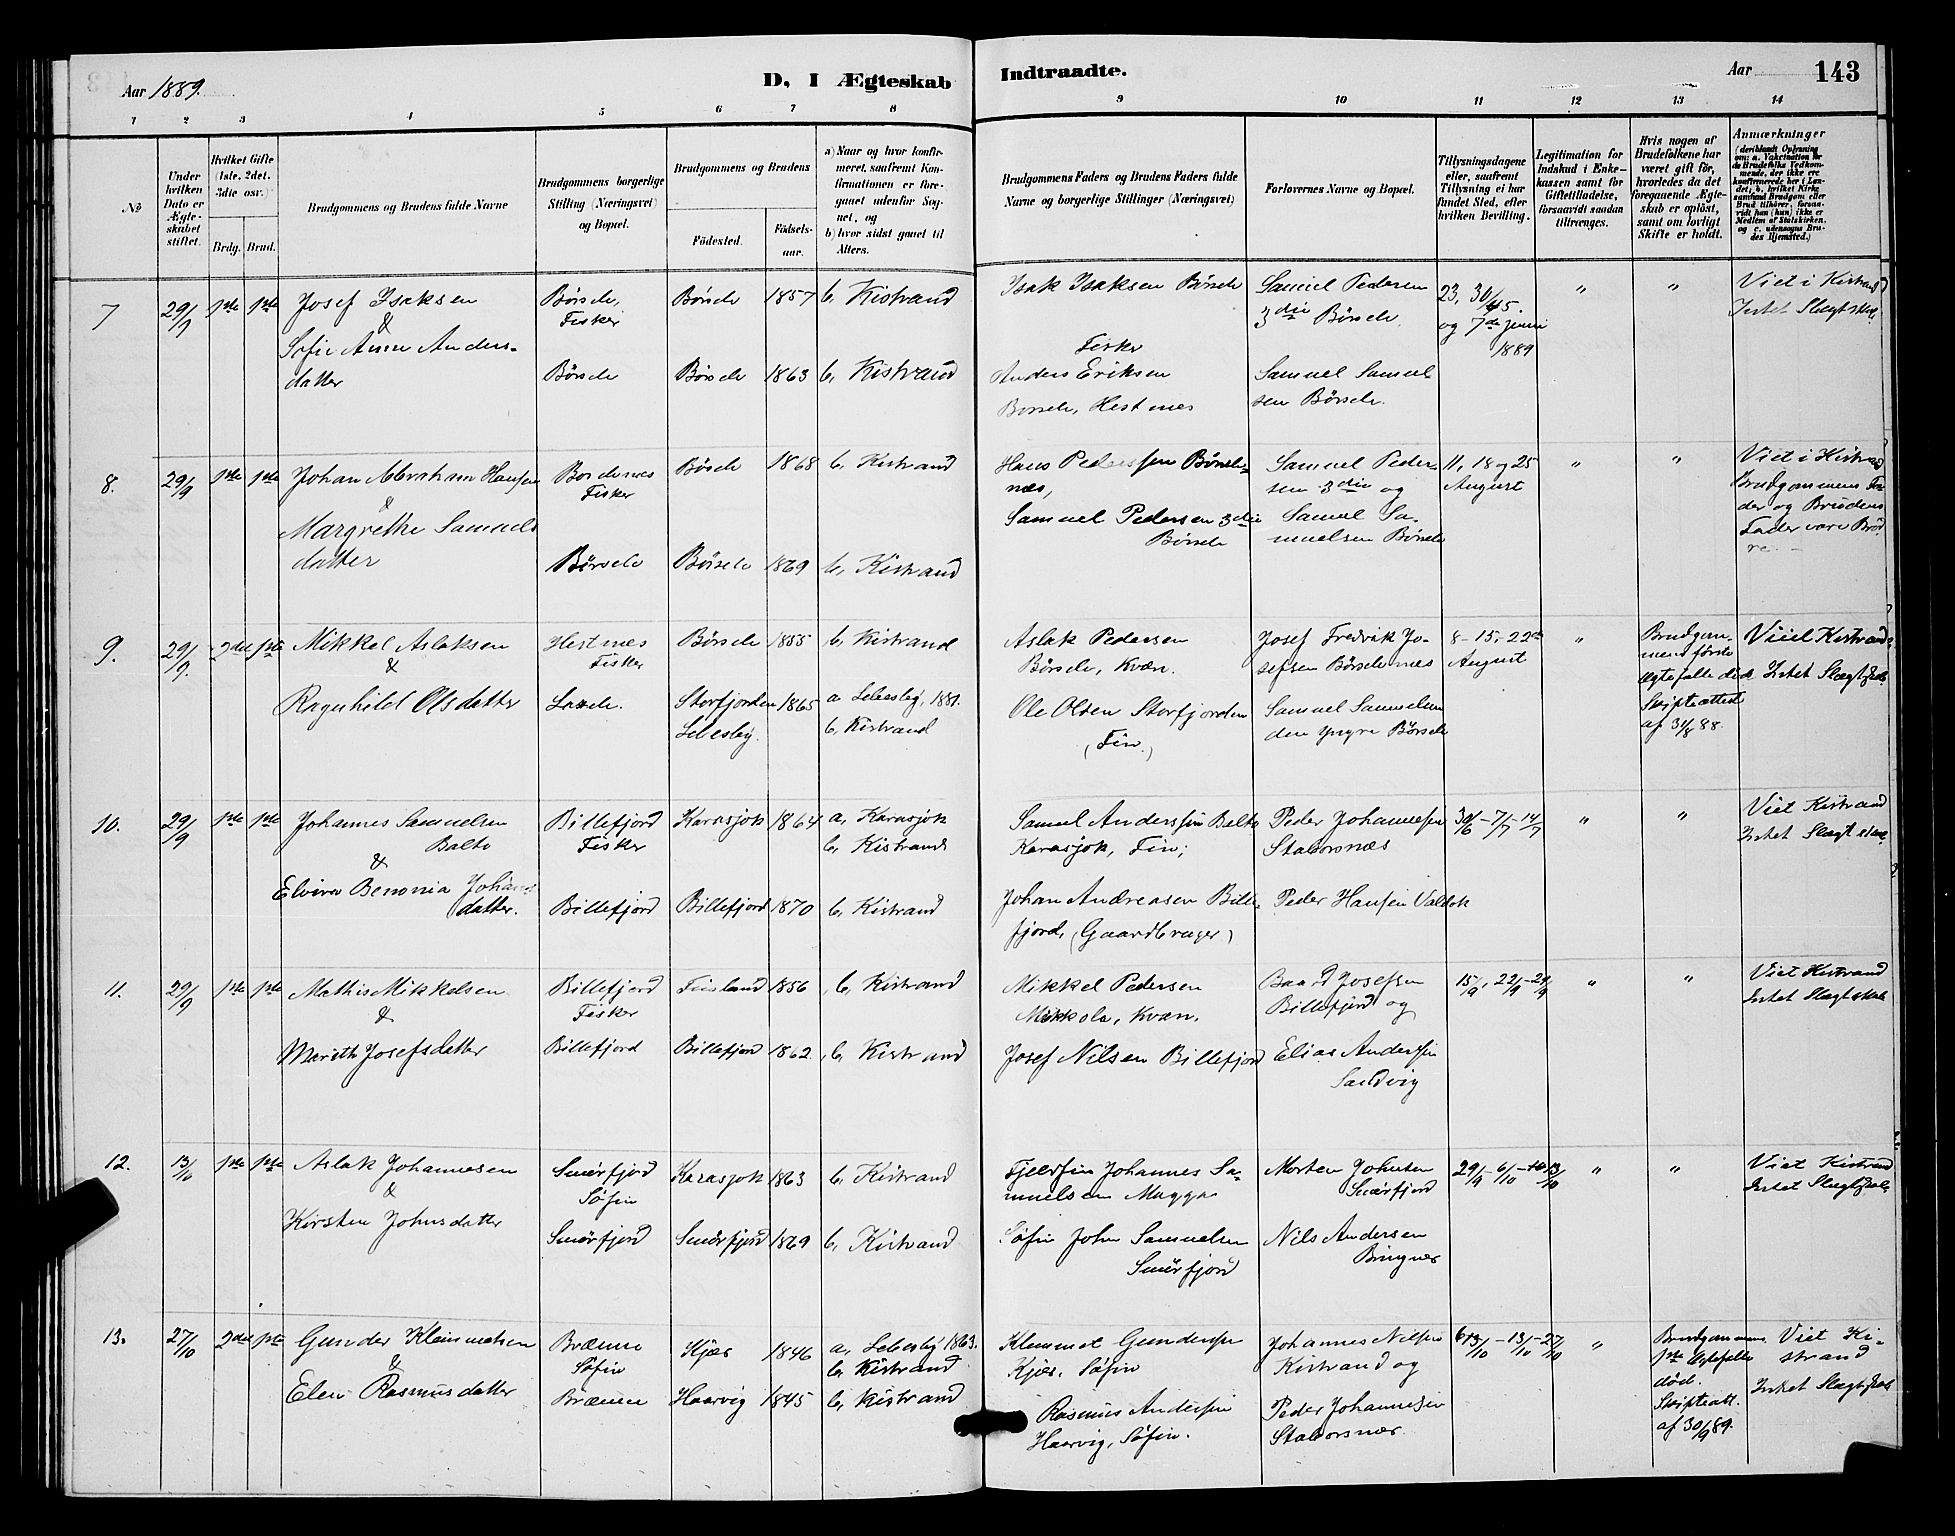 Aar 1889.
D, I Ægteskab
Indtraadte.
Aar
143
1 2 3 4 5 6 7 8 9 10 11 12 13 14
No
Under hvilken Dato er Ægteskabet stiftet.
Hvilket Gifte (1ste, 2det, 3die osv.)
Brdg. Brud.
Brudgommens og Brudens fulde Navne
Brudgommens borgerlige Stilling (Næringsvei) og Bopæl.
Brudgommens og Brudens
Fødested.
Fødsels-aar.
a) Naar og hvor konfirmeret, saafremt Konfirmationen er foregaaet udenfor Sognet, og
b) hvor sidst gaaet til Alters.
Brudgommens Faders og Brudens Faders fulde Navne og borgerlige Stillinger (Næringsvei)
Forlovernes Navne og Bopæl.
Tillysningsdagene eller, saafremt Tillysning ei har fundet Sted, efter hvilken Bevilling.
Legitimation for Indskud i Enkekassen samt for Giftetilladelse, forsaavidt saadan tiltrænges.
Hvis nogen af Brudefolkene har været gift før, hvorledes da det foregaaende Ægteskab er opløst, samt om lovligt Skifte er holdt.
Anmærkninger (deriblandt Oplysning om: a. Vakcination for de Brudefolks Vedkommende, der ikke ere konfirmerede her i Landet, b. hvilket Kirkesamfund Brudgom eller Brud tilhører, forsaavidt han (hun) ikke er Medlem af Statskirken, og c. udensogns Brudes Hjemsted.)
7 29/9 1ste 1ste Josef Isaksen
&
Sofie Anne Anders-
datter
Børsele,
Fisker
Børsele
Børsele 1857 b, Kistrand
Børsele 1863 b, Kistrand
Isak Isaksen Børsele
Fisker
Anders Eriksen
Børsele, Hestnes
Samuel Pedersen
3die Børsele.
Samuel Samuel
sen Børsele.
23, 30/5.
og 7de Juni
1889
" "
Viet i Kistrand
Intet Slægtskab
8. 29/9 1ste 1ste Johan Abraham Hansen
&
Margrethe Samuels
datter
Børselnes
Fisker
Børsele
Børsele 1868 b, Kistrand
Børsele 1869 b, Kistrand
Hans Pederssen Børsel-
nes,
Samuel Pedersen 3die
Børsele
Samuel Peder-
sen 3die og
Samuel Sa-
muelsen Børsele
11, 18 og 25
August
" "
Viet i Kistrand
Brudgommens Fa-
der og Brudens
Fader vare Brød
re. -
9. 29/9. 2det 1ste Mikkel Aslaksen
&
Ragnhild Olsdatter
Hestnes
Fisker
Børsele 1855 b, Kistrand
Storfjorden 1865
Lebesby.
a Lebesby, 1881.
b, Kistrand
Aslak Pedersen
Børsele, Kvæn.
Ole Olsen Storfjorden
(Fin.)
Josef Fredrik Jo-
sefsen Børselenes
Samuel Samuelsen
den yngre Børsele
8 - 15 - 22de
August
"
Brudgom-
mens første
Ægtefælle død
Skifteattest
af 31/8 88.
Viet Kistrand
Intet Slægtskab.
10. 29/9 1ste 1ste Johannes Samuelsen
Balto
&
Elvira Benonia Johans
datter.
Billefjord
Fisker
Billefjord
Karasjok 1864 a, Karasjok
b, Kistrand
Billefjord 1870 b, Kistrand
Samuel Anderssen Balto
Karasjok, Fin;
Johan Andreasen Bille-
fjord, (Gaardbruger)
Peder Johannesen
Staborsnæs
Peder Hansen Valdak
30/6 - 7/7 - 14/7
" "
Viet Kistrand
Intet Slægtskab
11. 29/9 1ste 1ste Mathis Mikkelsen
&
Marith Josefsdatter
Billefjord
Fisker
Billefjord
Finland 1856 b, Kistrand
Billefjord 1862 b, Kistrand
Mikkel Pedersen
Mikkola, Kvæn.
Josef Nilsen Billefjord
Baard Josefsen
Billefjord og
Elias Anderssen
Sandvig
15/9, 22/9 - 29/9
" "
Viet Kistrand
Intet Slægtskab
12. 13/10 1ste 1ste Aslak Johannesen
&
Kirsten Johnsdatter
Smørfjord
Søfin
Smørfjord
Karasjok 1863 b, Kistrand
Smørfjord 1869 b, Kistrand
Fjeldfin Johannes Sa-
muelsen Magga
Søfin John Samuelsen
Smørfjord
Morten Johnsen
Smørfjord
Nils Andersen
Bringnes
29/9 - 6/10 - 13/10
" "
Viet Kistrand
Intet Slægtskab
13. 27/10 2det 1ste Gunder Klemmetsen
&
Elen Rasmusdatter
Brænne
Søfin
Brænne
Kjæs 1846 a, Lebesby 1863.
b, Kistrand
Haarvig 1845 b, Kistrand
Klemmet Gundersen
Kjæs, Søfin
Rasmus Anderssen
Haarvig, Søfin.
Johannes Nilsen
Kistrand og
Peder Johannesen
Staborsnes
6/10 - 13/10 - 27/10
"
Brudgommens
1ste Ægtefælle
død.
Skifteatt.
af 30/9 89.
Viet Ki-
strand
Intet Slægtskab